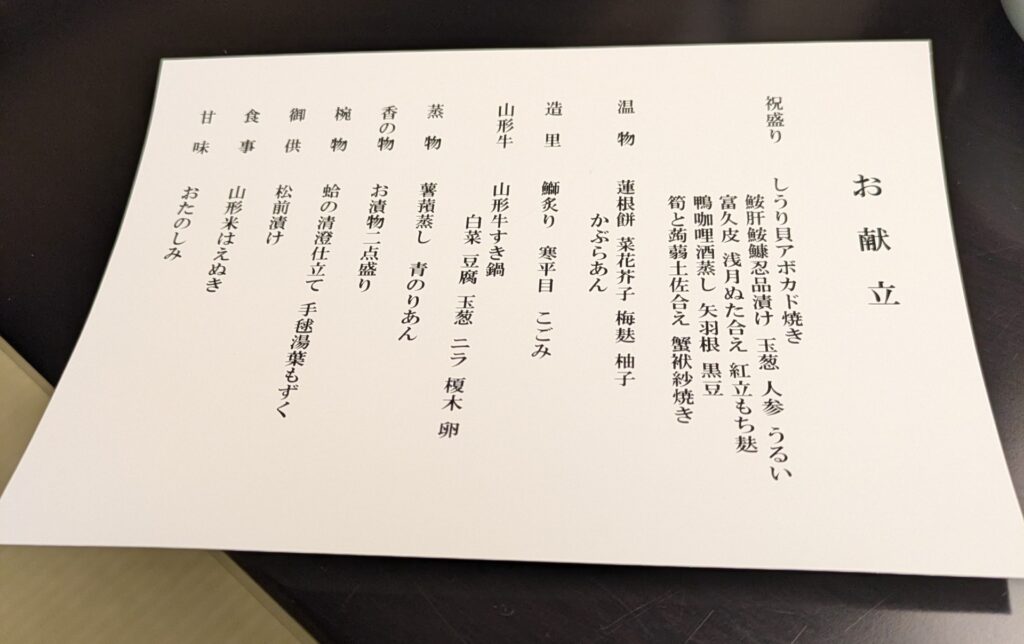 お献立
祝盛り しうり貝アボカド焼き
鮟肝鮟鱇忍品漬け 玉葱 人参 うるい
富久皮 浅月ぬた合え 紅立もち麸
鴨咖哩酒蒸し 矢羽根 黒豆
筍と蒟蒻土佐合え 蟹袱紗焼き
温物 蓮根餅 菜花芥子 梅麸 柚子
かぶらあん
造里 鰤炙り 寒平目 こごみ
山形牛 山形牛すき鍋
白菜 豆腐 玉葱 ニラ 榎木 卵
蒸物 薯蕷蒸し 青のりあん
香の物 お漬物二点盛り
椀物 蛤の清澄仕立て 手毬湯葉もずく
御供 松前漬け
食事 山形米はえぬき
甘味 おたのしみ